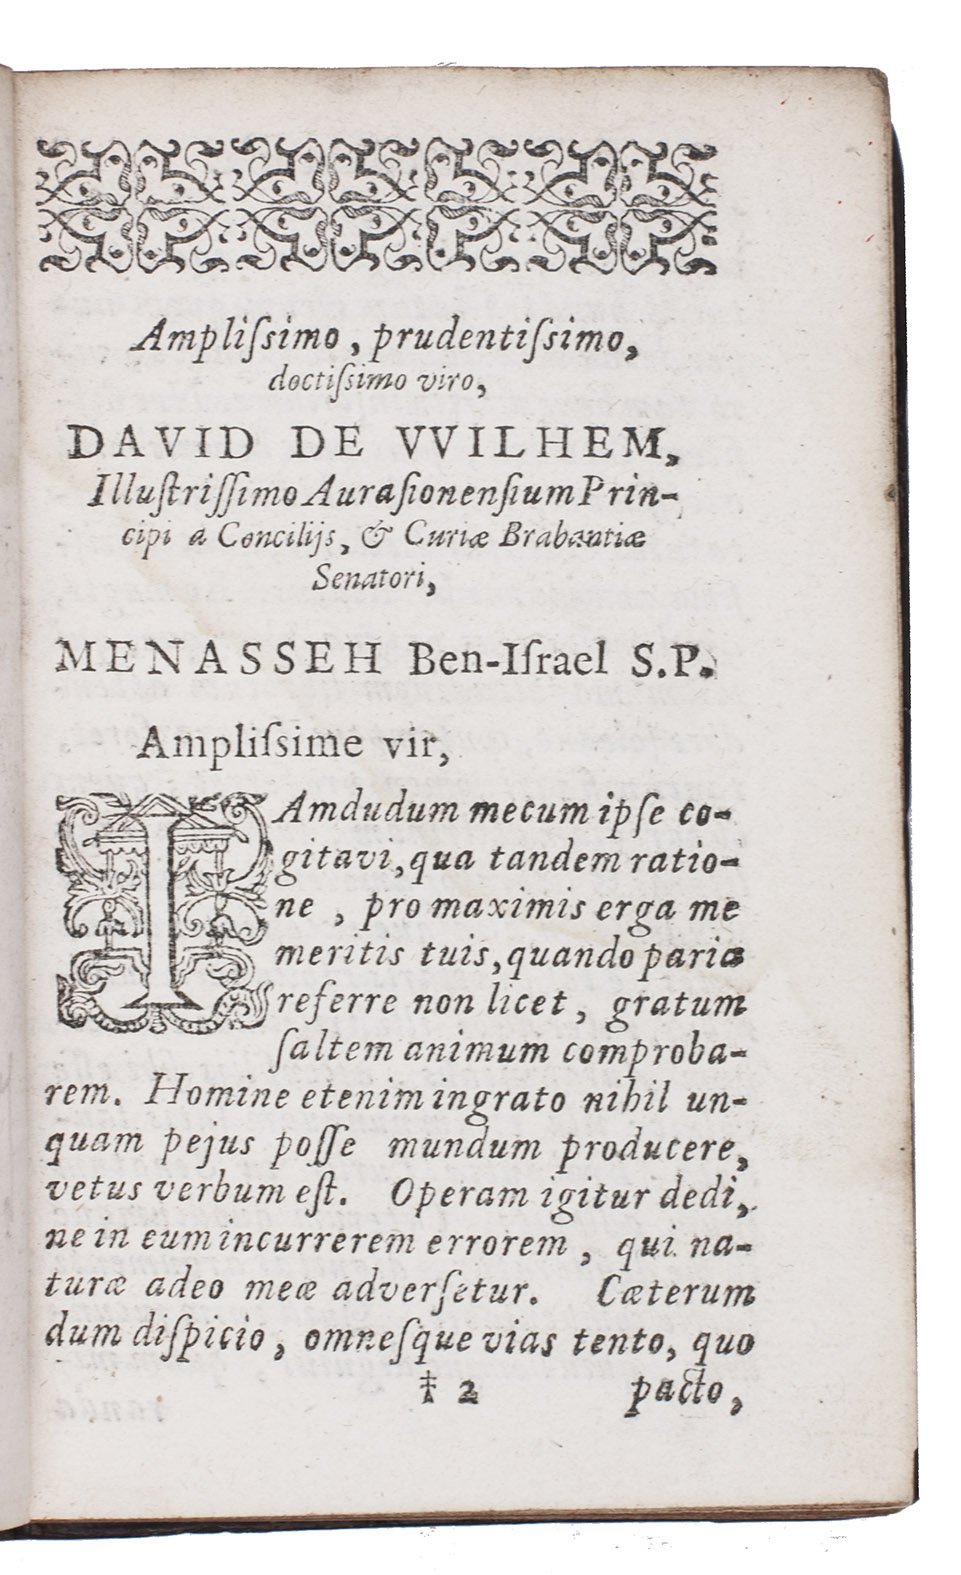 Ampliſsimo, prudentiſsimo,
doctiſsimo viro,
DAVID DE VVILHEM,
Illuſtriſſimo Auraſionenſium Prin-
cipi a Concilijs, & Curiæ Brabantiæ
Senatori,
MENASSEH Ben-Iſrael S.P.
Ampliſsime vir,
IAmdudum mecum ipſe co-
gitavi, qua tandem ratio-
ne , pro maximis erga me
meritis tuis, quando paria
referre non licet , gratum
ſaltem animum comproba-
rem. Homine etenim ingrato nihil un-
quam pejus poſſe mundum producere,
vetus verbum eſt. Operam igitur dedi,
ne in eum incurrerem errorem , qui na-
turæ adeo meæ adverſetur. Cæterum
dum diſpicio , omneſque vias tento, quo
‡ 2 pacto,